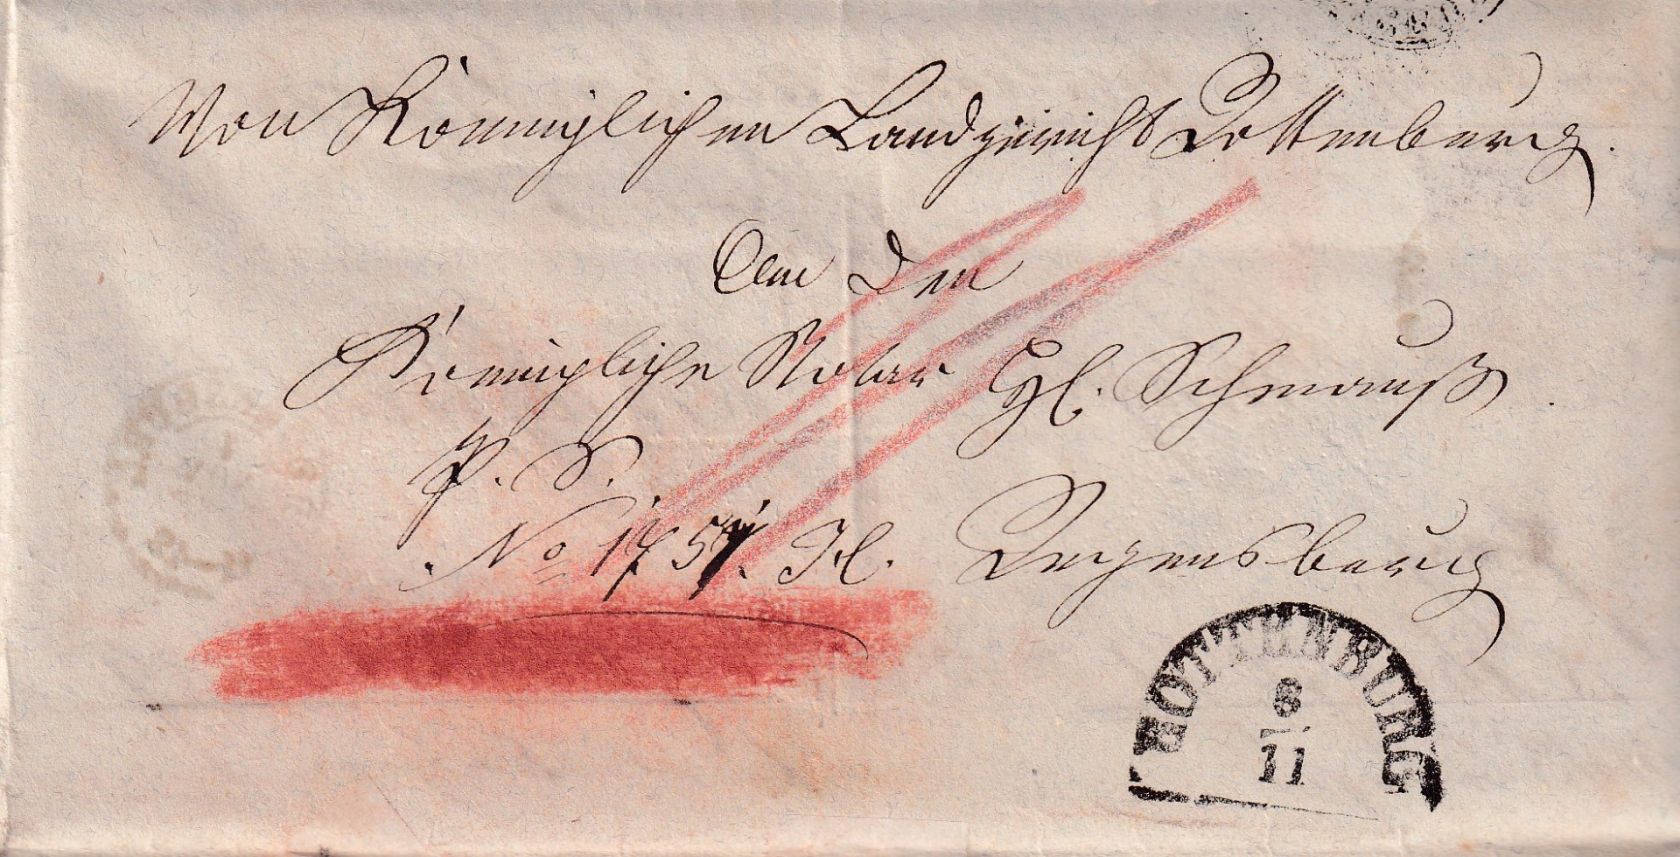 Von Königlichen Landgericht Rottenburg.
An den
Königliche Notar H. Schmauß
P. S.
No 1757. H. Regensburg
ROTTENBURG
6
11